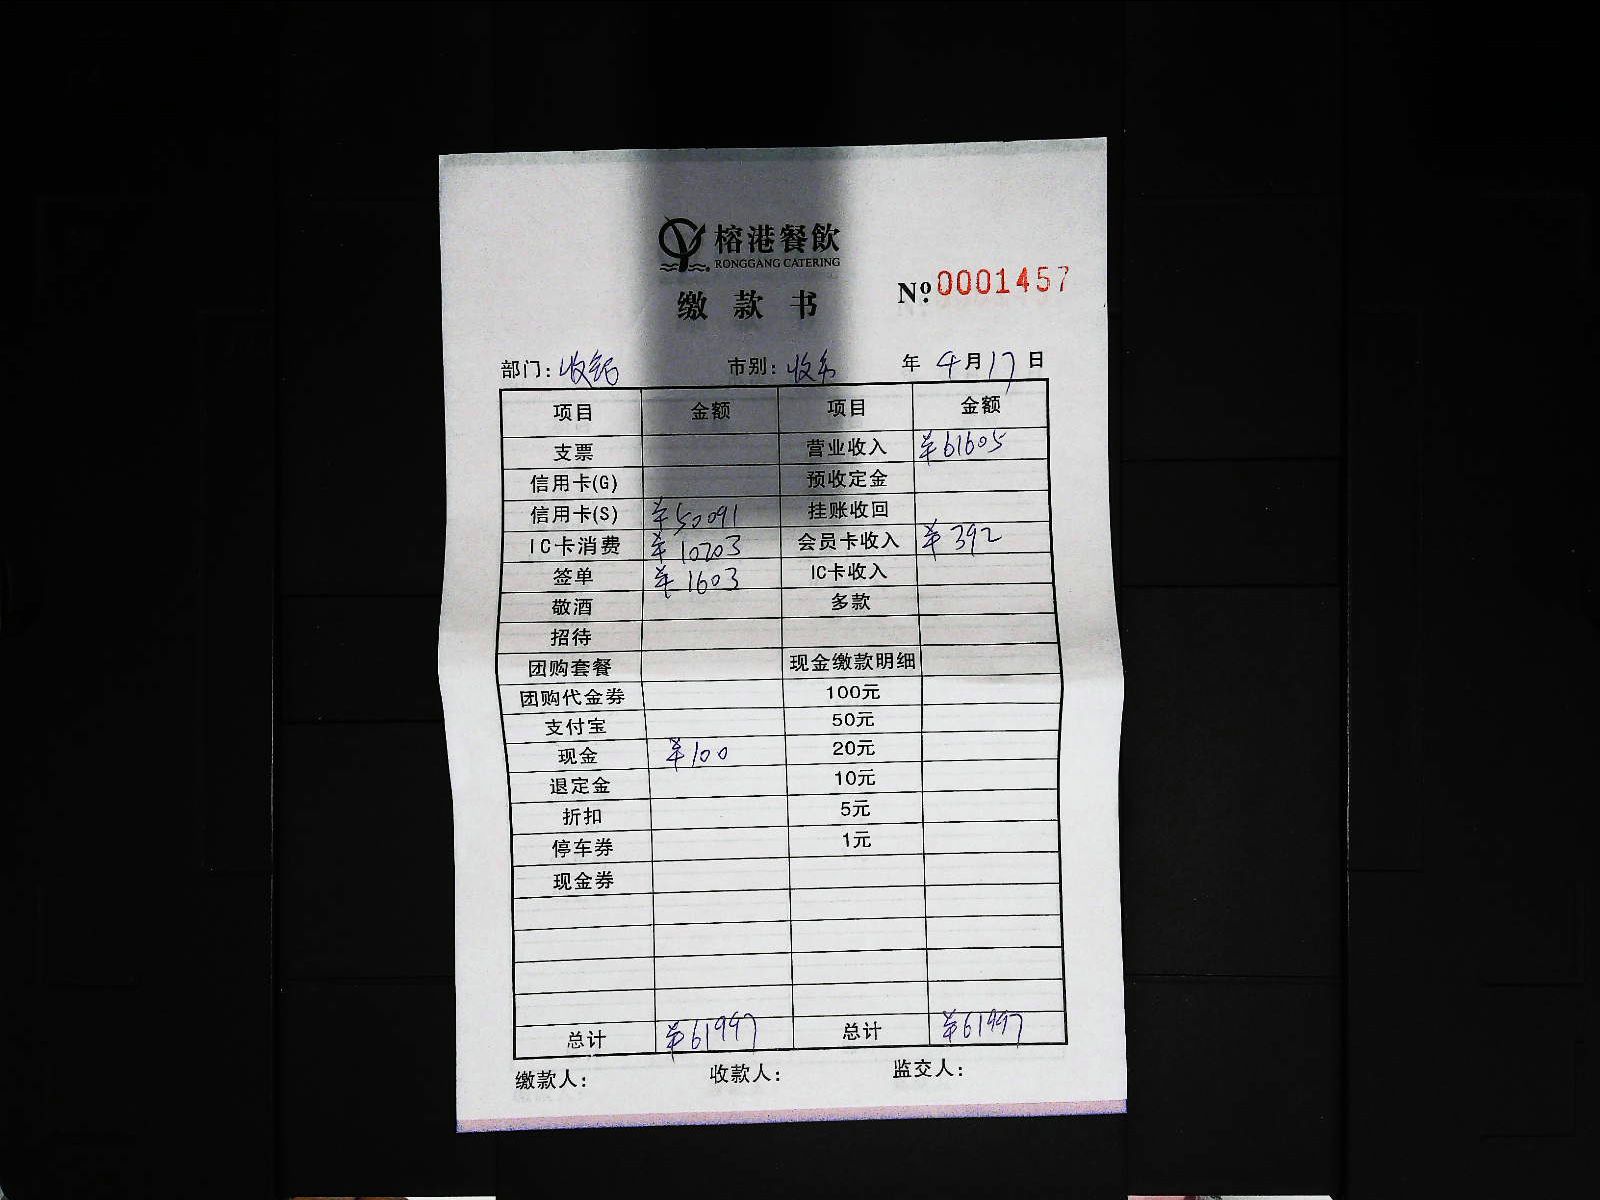 榕港餐飲
RONGGANG CATERING
缴款书
№ 0001457
部门: 收银 市别: 收市 年 4月17日
项目 金额 项目 金额
支票 营业收入 ¥61605
信用卡(G) 预收定金
信用卡(S) ¥50091 挂账收回
IC卡消费 ¥10203 会员卡收入 ¥392
签单 ¥1603 IC卡收入
敬酒 多款
招待
团购套餐 现金缴款明细
团购代金券 100元
支付宝 50元
现金 ¥100 20元
退定金 10元
折扣 5元
停车券 1元
现金券
总计 ¥61997 总计 ¥61997
缴款人: 收款人: 监交人: